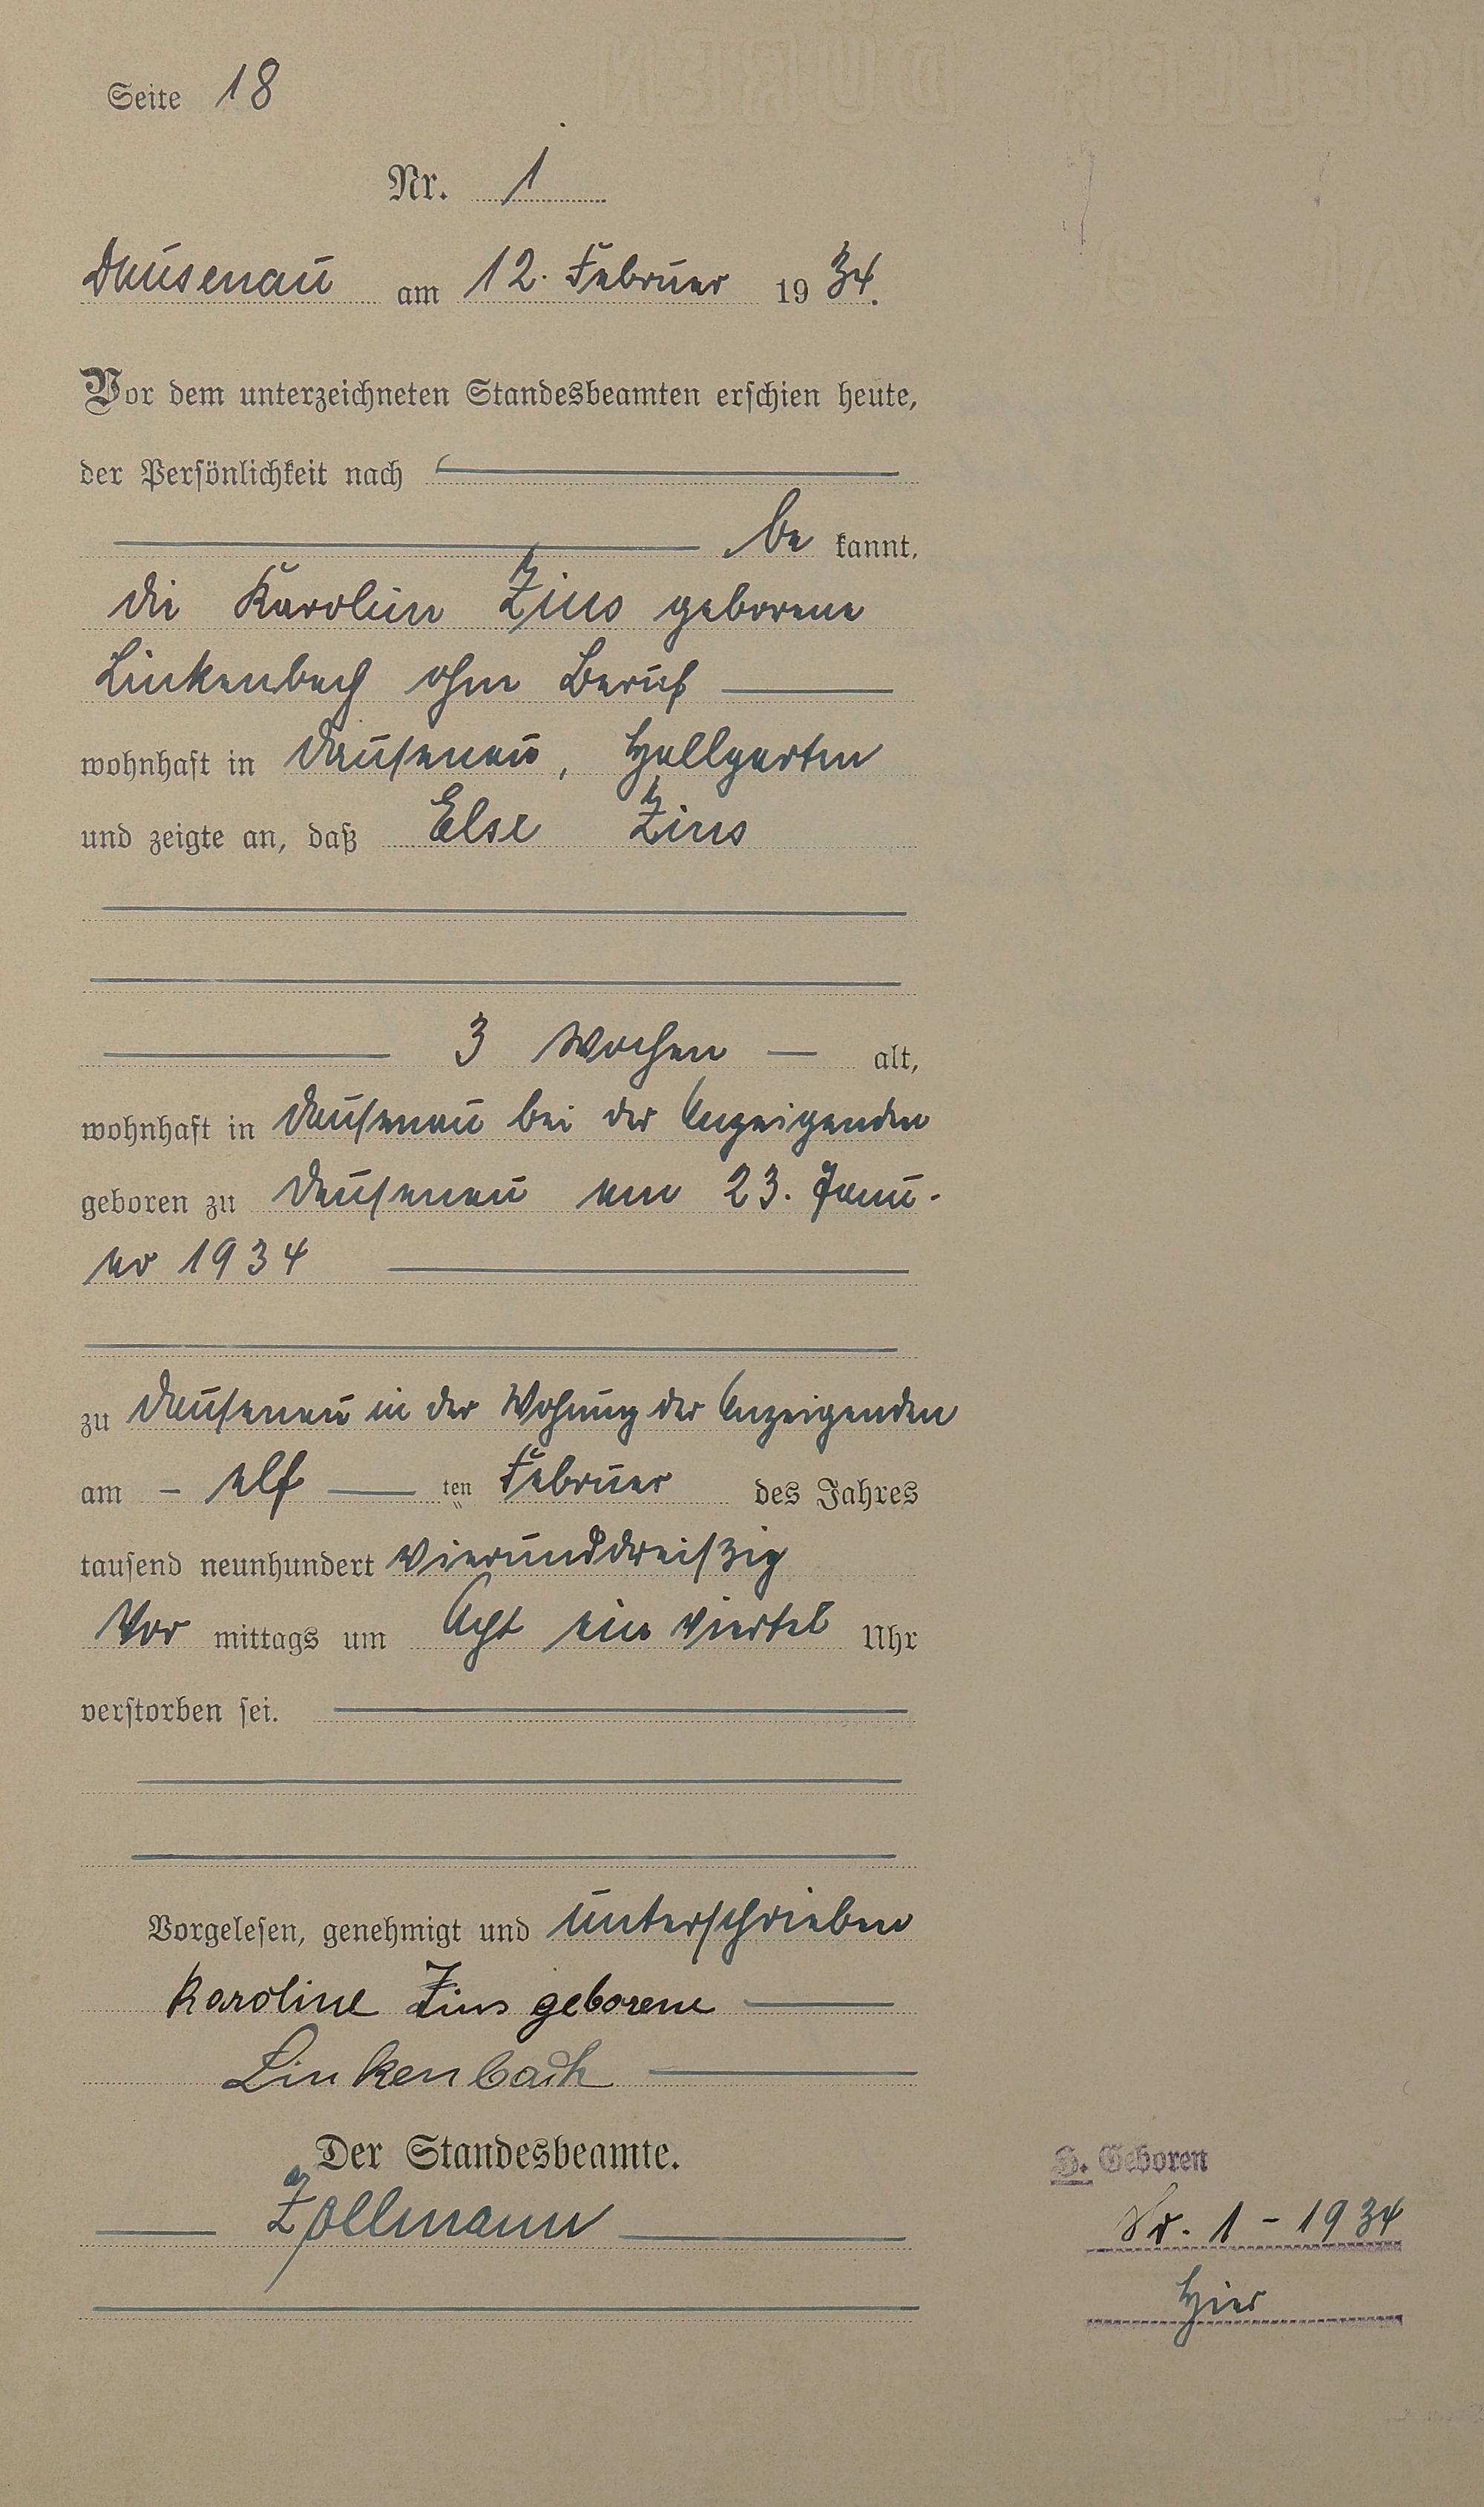 Seite 18
Nr. 1
Dausenau am 12. Februar 1934.
Vor dem unterzeichneten Standesbeamten erschien heute,
der Persönlichkeit nach
be kannt,
die Karolin Zins geborene
Linkenbach ohne Beruf
wohnhaft in Dausenau, Hallgarten
und zeigte an, daß Else Zins
3 Wochen alt,
wohnhaft in Dausenau bei der Anzeigenden
geboren zu Dausenau am 23. Janu-
ar 1934
zu Dausenau in der Wohnung der Anzeigenden
am elf ten Februar des Jahres
tausend neunhundert vierunddreißzig
Vor mittags um Acht ein viertel Uhr
verstorben sei.
Vorgelesen, genehmigt und unterschrieben
Karoline Zins geborene
Linkenbach
Der Standesbeamte.
Zollmann
H. Geboren
Nr. 1 - 1934
hier